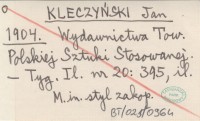 KLECZYŃSKI Jan
1904. Wydawnictwa Tow.
Polskiej Sztuki Stosowanej.
— Tyg. Il. nr 20: 395, il.
M.in. styl zakop.
BT/021/0364